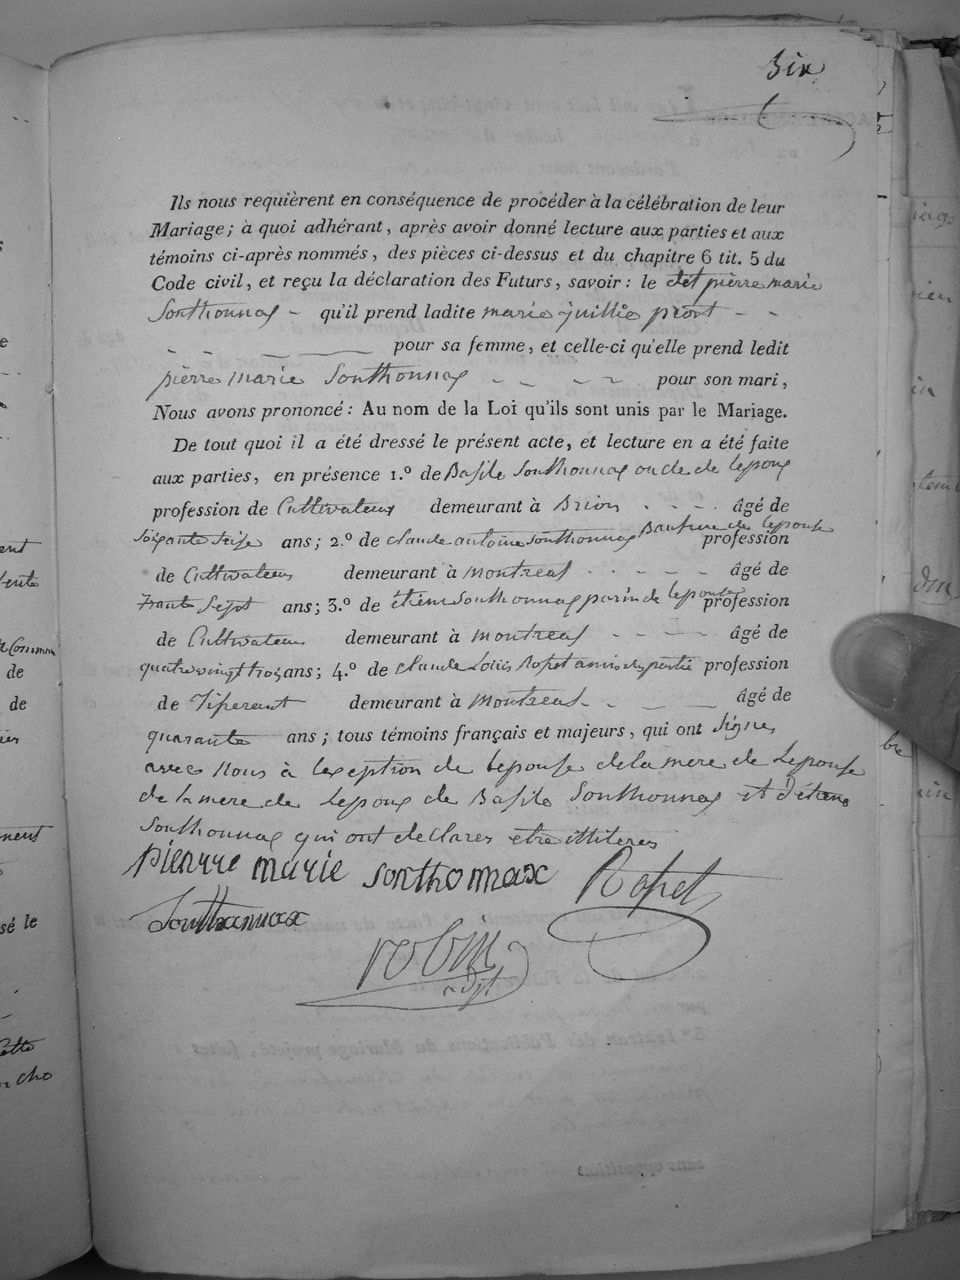 Six
Ils nous requièrent en conséquence de procéder à la célébration de leur
Mariage; à quoi adhérant, après avoir donné lecture aux parties et aux
témoins ci-après nommés, des pièces ci-dessus et du chapitre 6 tit. 5 du
Code civil, et reçu la déclaration des Futurs, savoir: le dit pierre marie
Sonthonnax - qu'il prend ladite marie jullie piort - -
pour sa femme, et celle-ci qu'elle prend ledit
pierre marie Sonthonnax - - - - pour son mari,
Nous avons prononcé: Au nom de la Loi qu'ils sont unis par le Mariage.
De tout quoi il a été dressé le présent acte, et lecture en a été faite
aux parties, en présence 1.º de Basile Sonthonnax oncle de lepoux
profession de Cultivateur demeurant à Brion - - - - âgé de
Soixante Seise ans; 2.º de claude antoine Sonthonnax Baufrere de lepouse profession
de Cultivateur demeurant à Montreal - - - - - âgé de
Trante Sept ans; 3.º de étiene Sonthonnax parin de lepouse profession
de Cultivateur demeurant à Montreal - - - - âgé de
quatrevingt trois ans; 4.º de claude Louis Ropet amis des partie profession
de Tiserant demeurant à Montreal - - - âgé de
quarante ans; tous témoins français et majeurs, qui ont Signes
avec Nous à lexception de lepouse de la mere de Lepouse
de la mere de lepoux de Basile Sonthonnax et détiene
Sonthonnax qui ont declares etre illiteres
pierre marie sonthonnax Ropet
Sonthonnax
robin
adjt